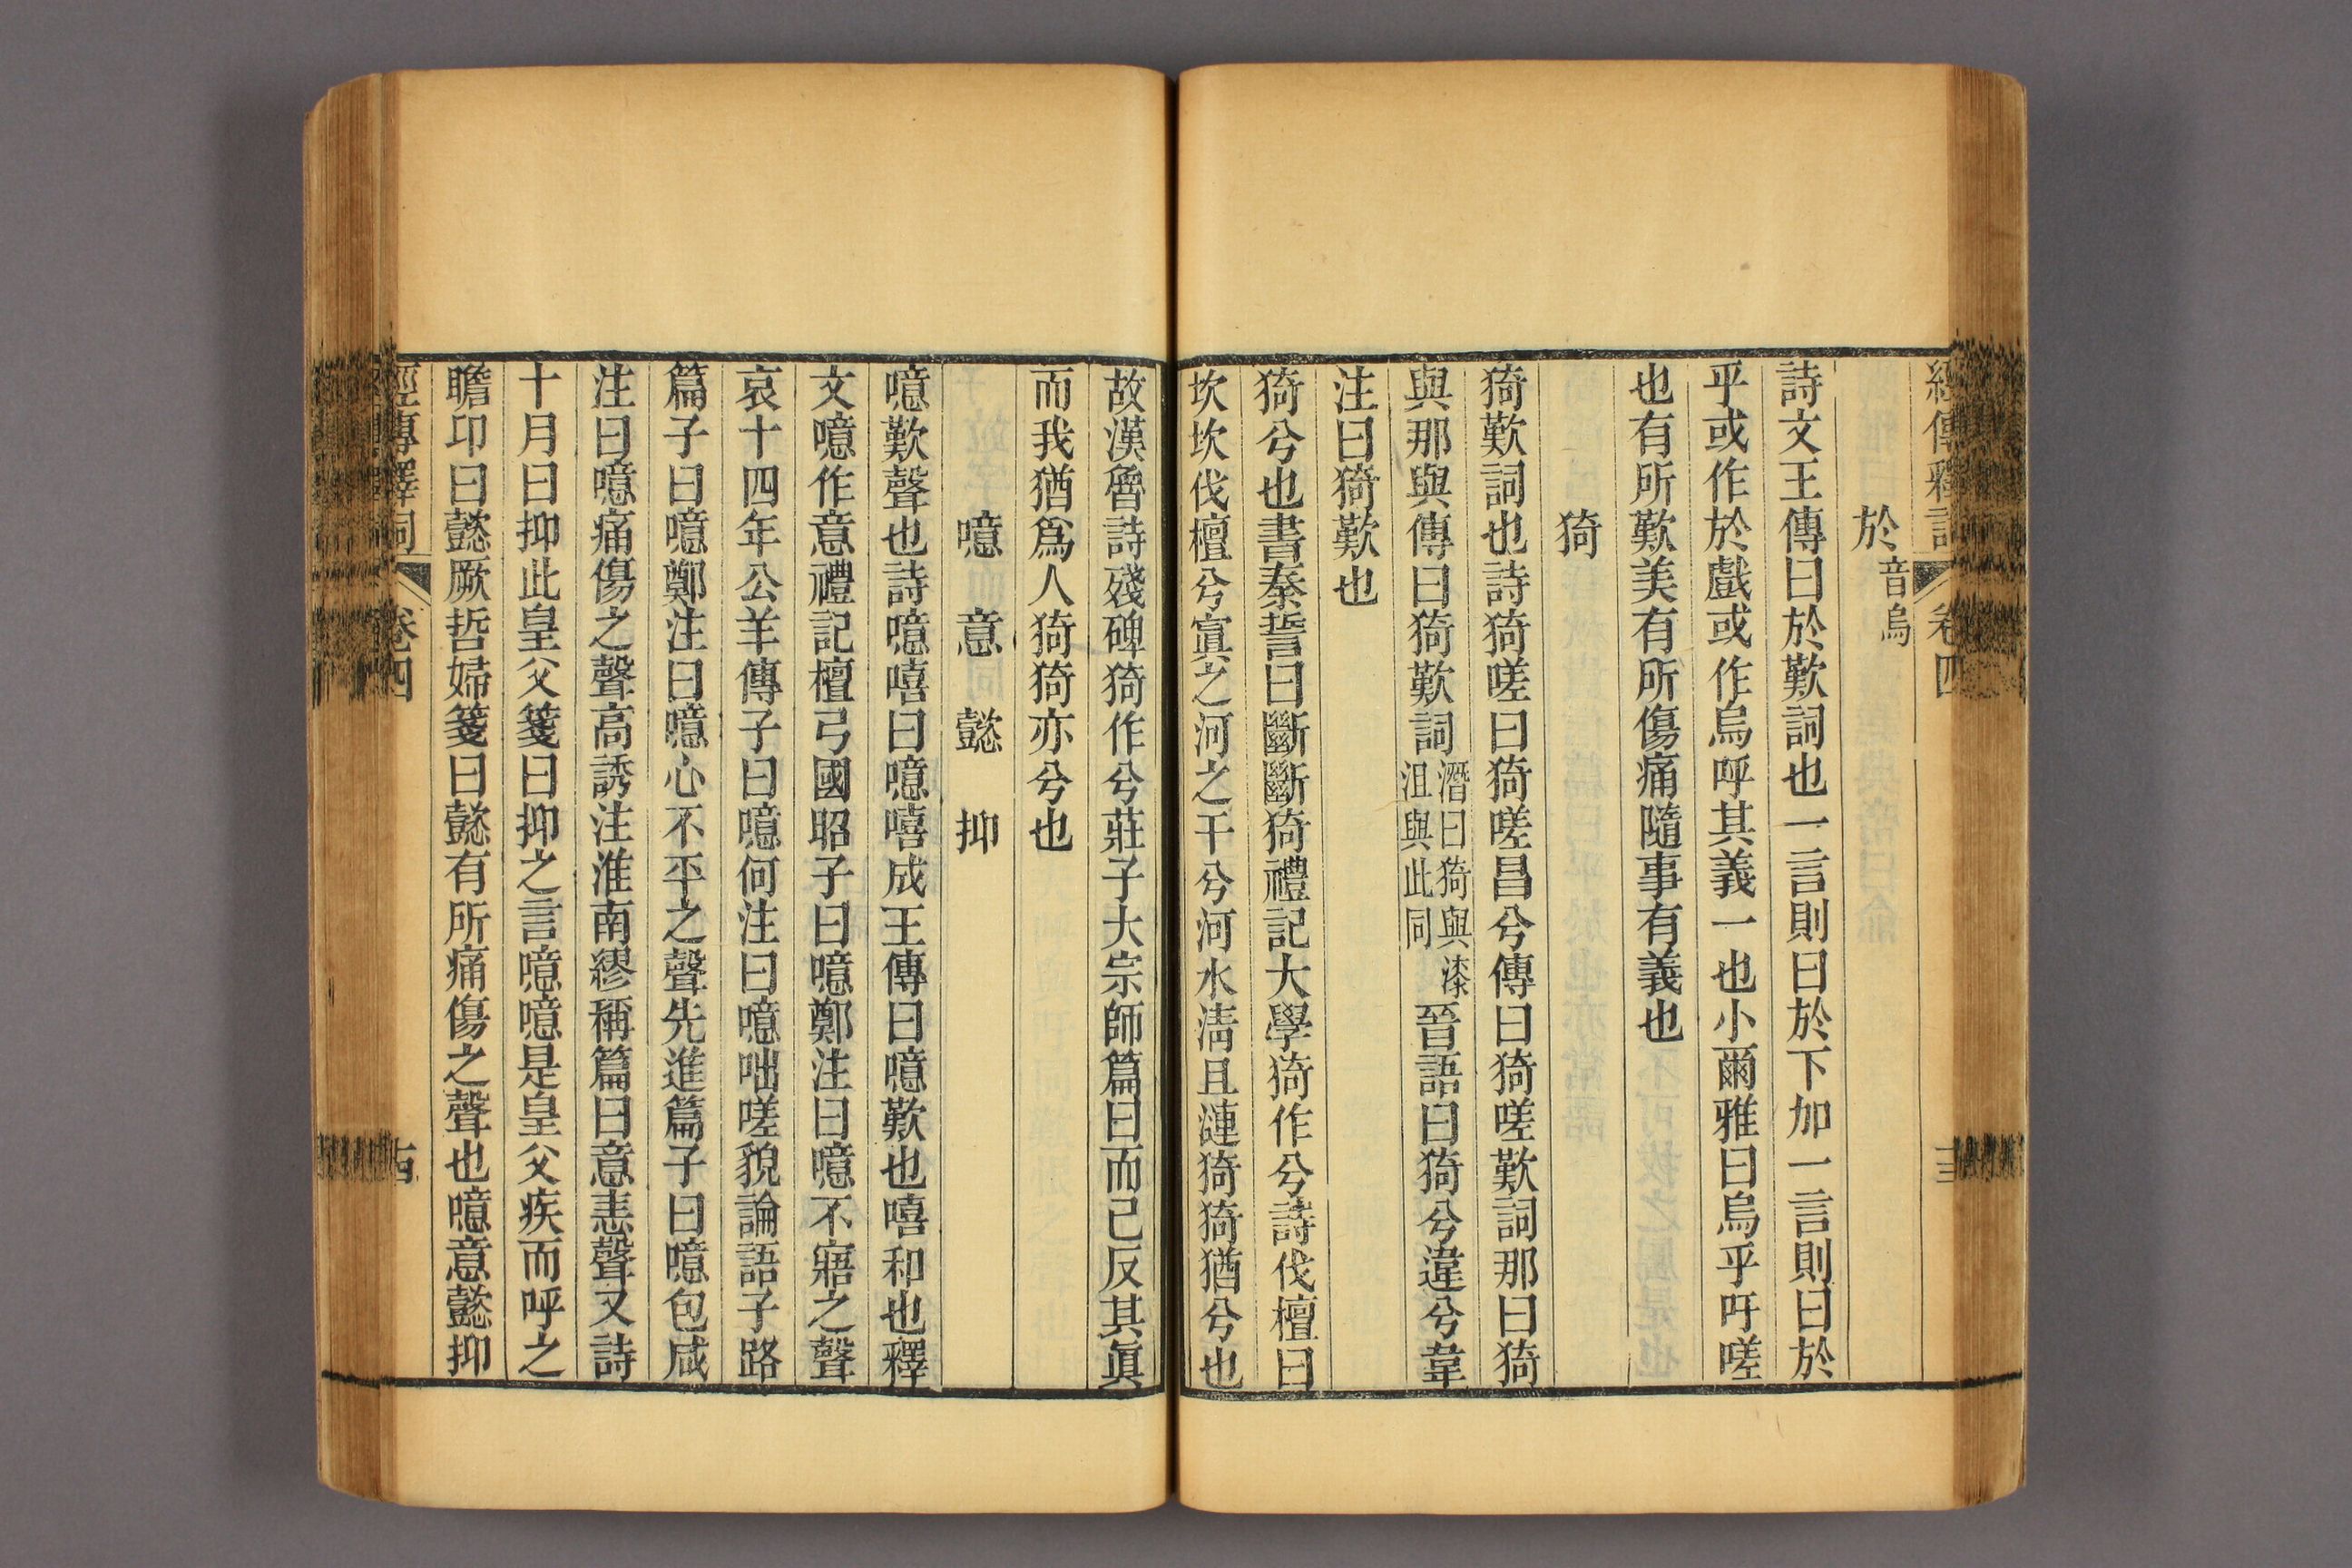 經傳釋詞 卷四 十三
於音烏
詩文王傳曰於歎詞也一言則曰於下加一言則曰於
乎或作於戲或作烏呼其義一也小爾雅曰烏乎吁嗟
也有所歎美有所傷痛隨事有義也
猗
猗歎詞也詩猗嗟曰猗嗟昌兮傳曰猗嗟歎詞那曰猗
與那與傳曰猗歎詞潛曰猗與漆沮與此同晉語曰猗兮違兮韋
注曰猗歎也
猗兮也書秦誓曰斷斷猗禮記大學猗作兮詩伐檀曰
坎坎伐檀兮寘之河之干兮河水淸且漣猗猗猶兮也
故漢魯詩殘碑猗作兮莊子大宗師篇曰而已反其眞
而我猶爲人猗猗亦兮也
噫 意 懿 抑
噫歎聲也詩噫嘻曰噫嘻成王傳曰噫歎也嘻和也釋
文噫作意禮記檀弓國昭子曰噫鄭注曰噫不寤之聲
哀十四年公羊傳子曰噫何注曰噫咄嗟貌論語子路
篇子曰噫鄭注曰噫心不平之聲先進篇子曰噫包咸
注曰噫痛傷之聲高誘注淮南繆稱篇曰意恚聲又詩
十月曰抑此皇父箋曰抑之言噫噫是皇父疾而呼之
瞻卬曰懿厥哲婦箋曰懿有所痛傷之聲也噫意懿抑
經傳釋詞 卷四 十四